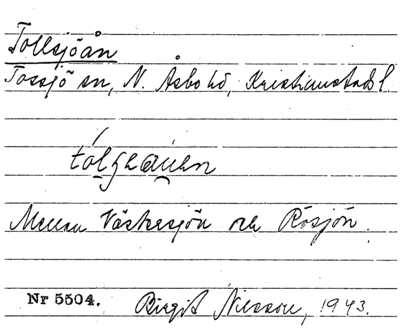 Tollsjöån
Tossjö sn, N. Åsbo hd, Kristianstads l
Mellan Västersjön och Rösjön.
Nr 5504. Birgit Nilsson, 1943.